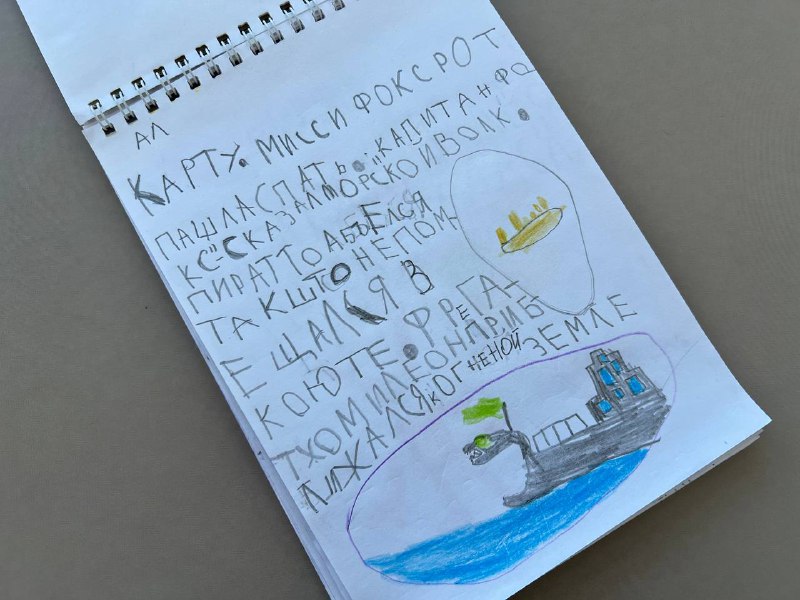 АЛ
КАРТУ. МИССИ ФОКСРОТ
ПАШЛАСПАТЬ. "КАПИТАН ФО
КС"-СКАЗАЛМОРСКОЙВОЛК.
ПИРАТТОАБЪЕЛСЯ
ТАКШТОНЕПОМ-
ЕЩАЛСЯ В
КОЮТЕ. ФРЕГА-
ТХОМИЛЕОНПРИБ
ЛИЖАЛСЯКОГНЕНОЙ ЗЕМЛЕ